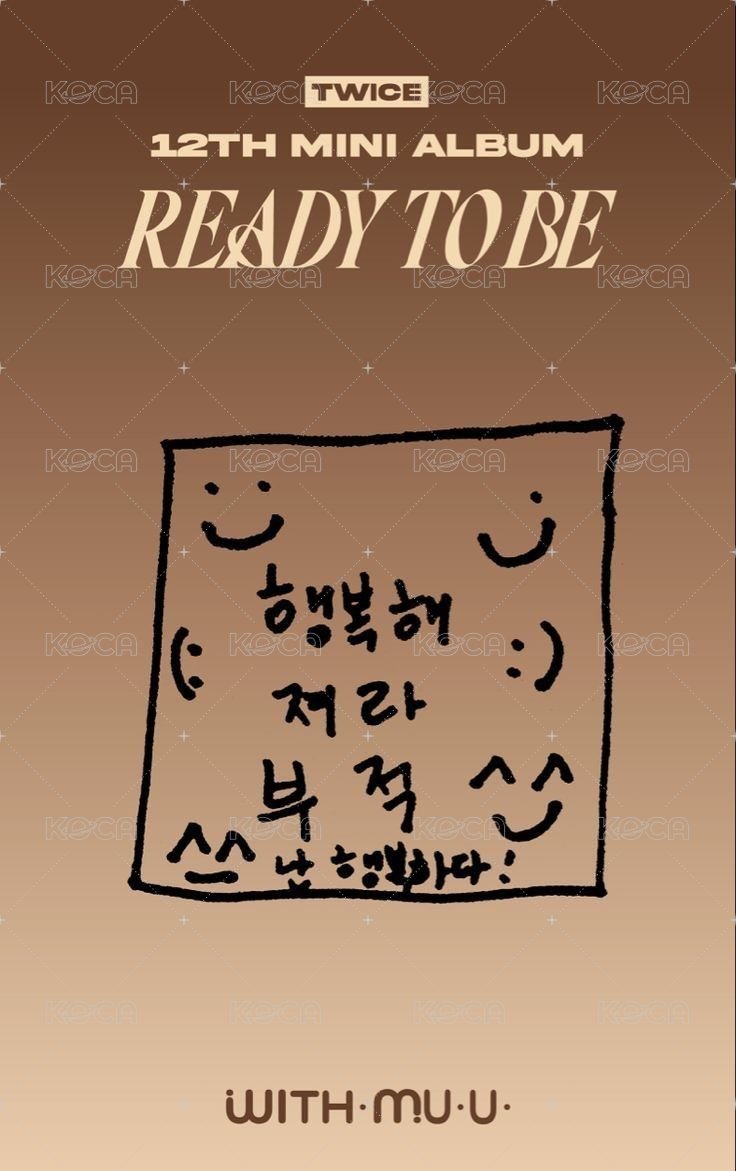 TWICE
12TH MINI ALBUM
READY TO BE
행복해
져라
부적
난 행복하다!
WITH·MU·U·
KOCA